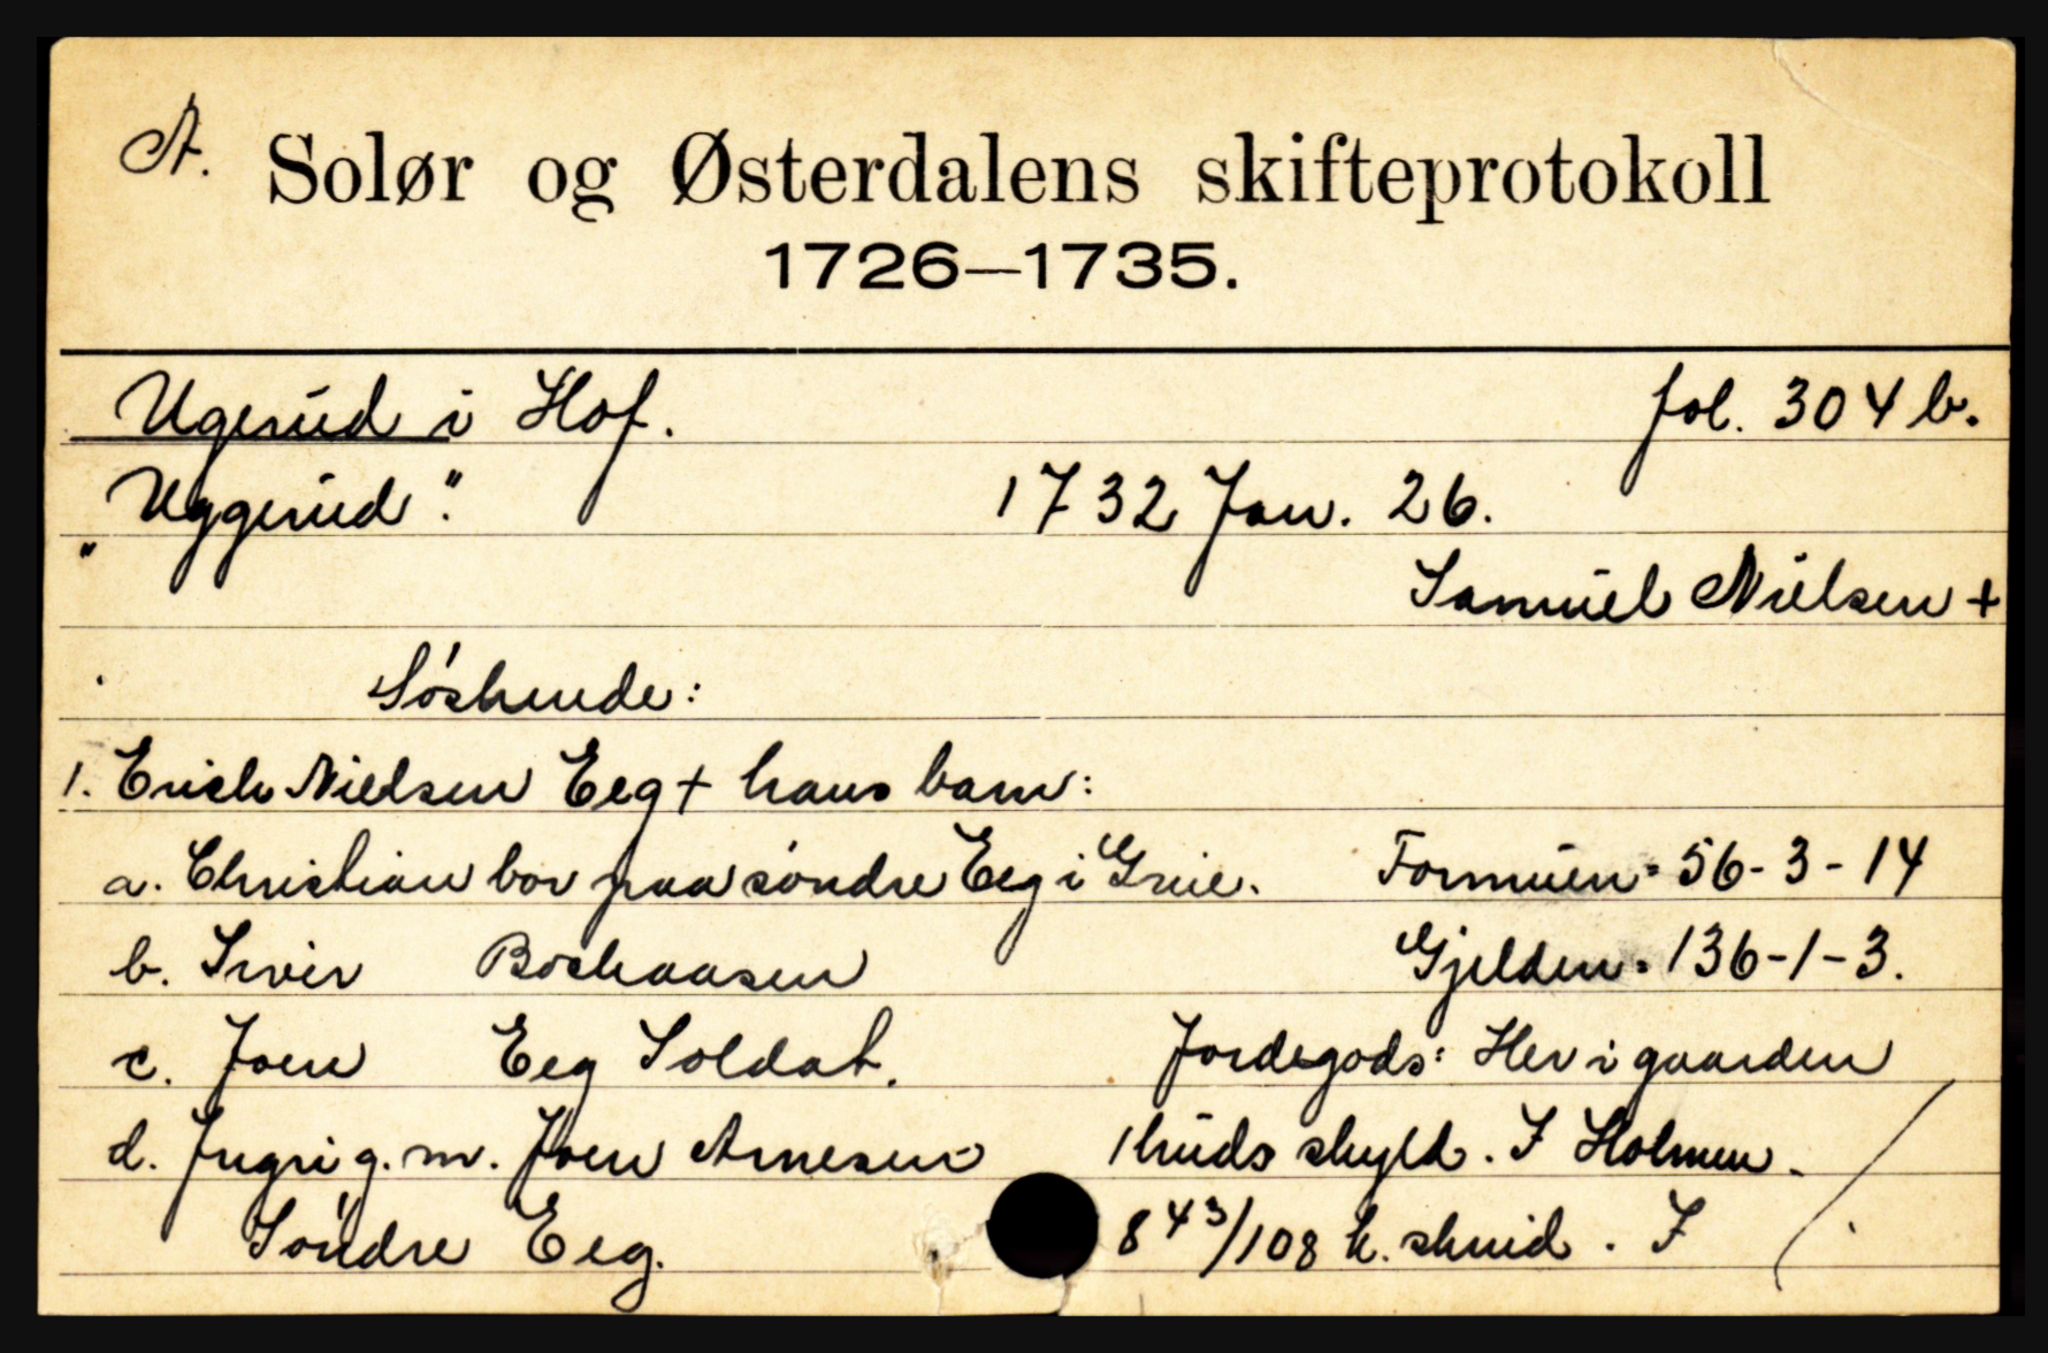 A. Solør og Østerdalens skifteprotokoll
1726—1735.
Ugerud i Hof. fol. 304 b.
"Uggerud". 1732 Jan. 26.
Samuel Nielsen +
Søskende:
1. Erich Nielsen Eeg + hans barn:
a. Christian bor paa søndre Eeg i Grue. Formuen = 56-3-14
b. Siver Boehaasen Gjelden = 136-1-3.
c. Joen Eeg Soldat. Jordegods: Her i gaarden
d. Ingri g. m. Joen Arnesen 1 huds skyld. I Holmen
Søndre Eeg. 8 43/108 h. skind. I